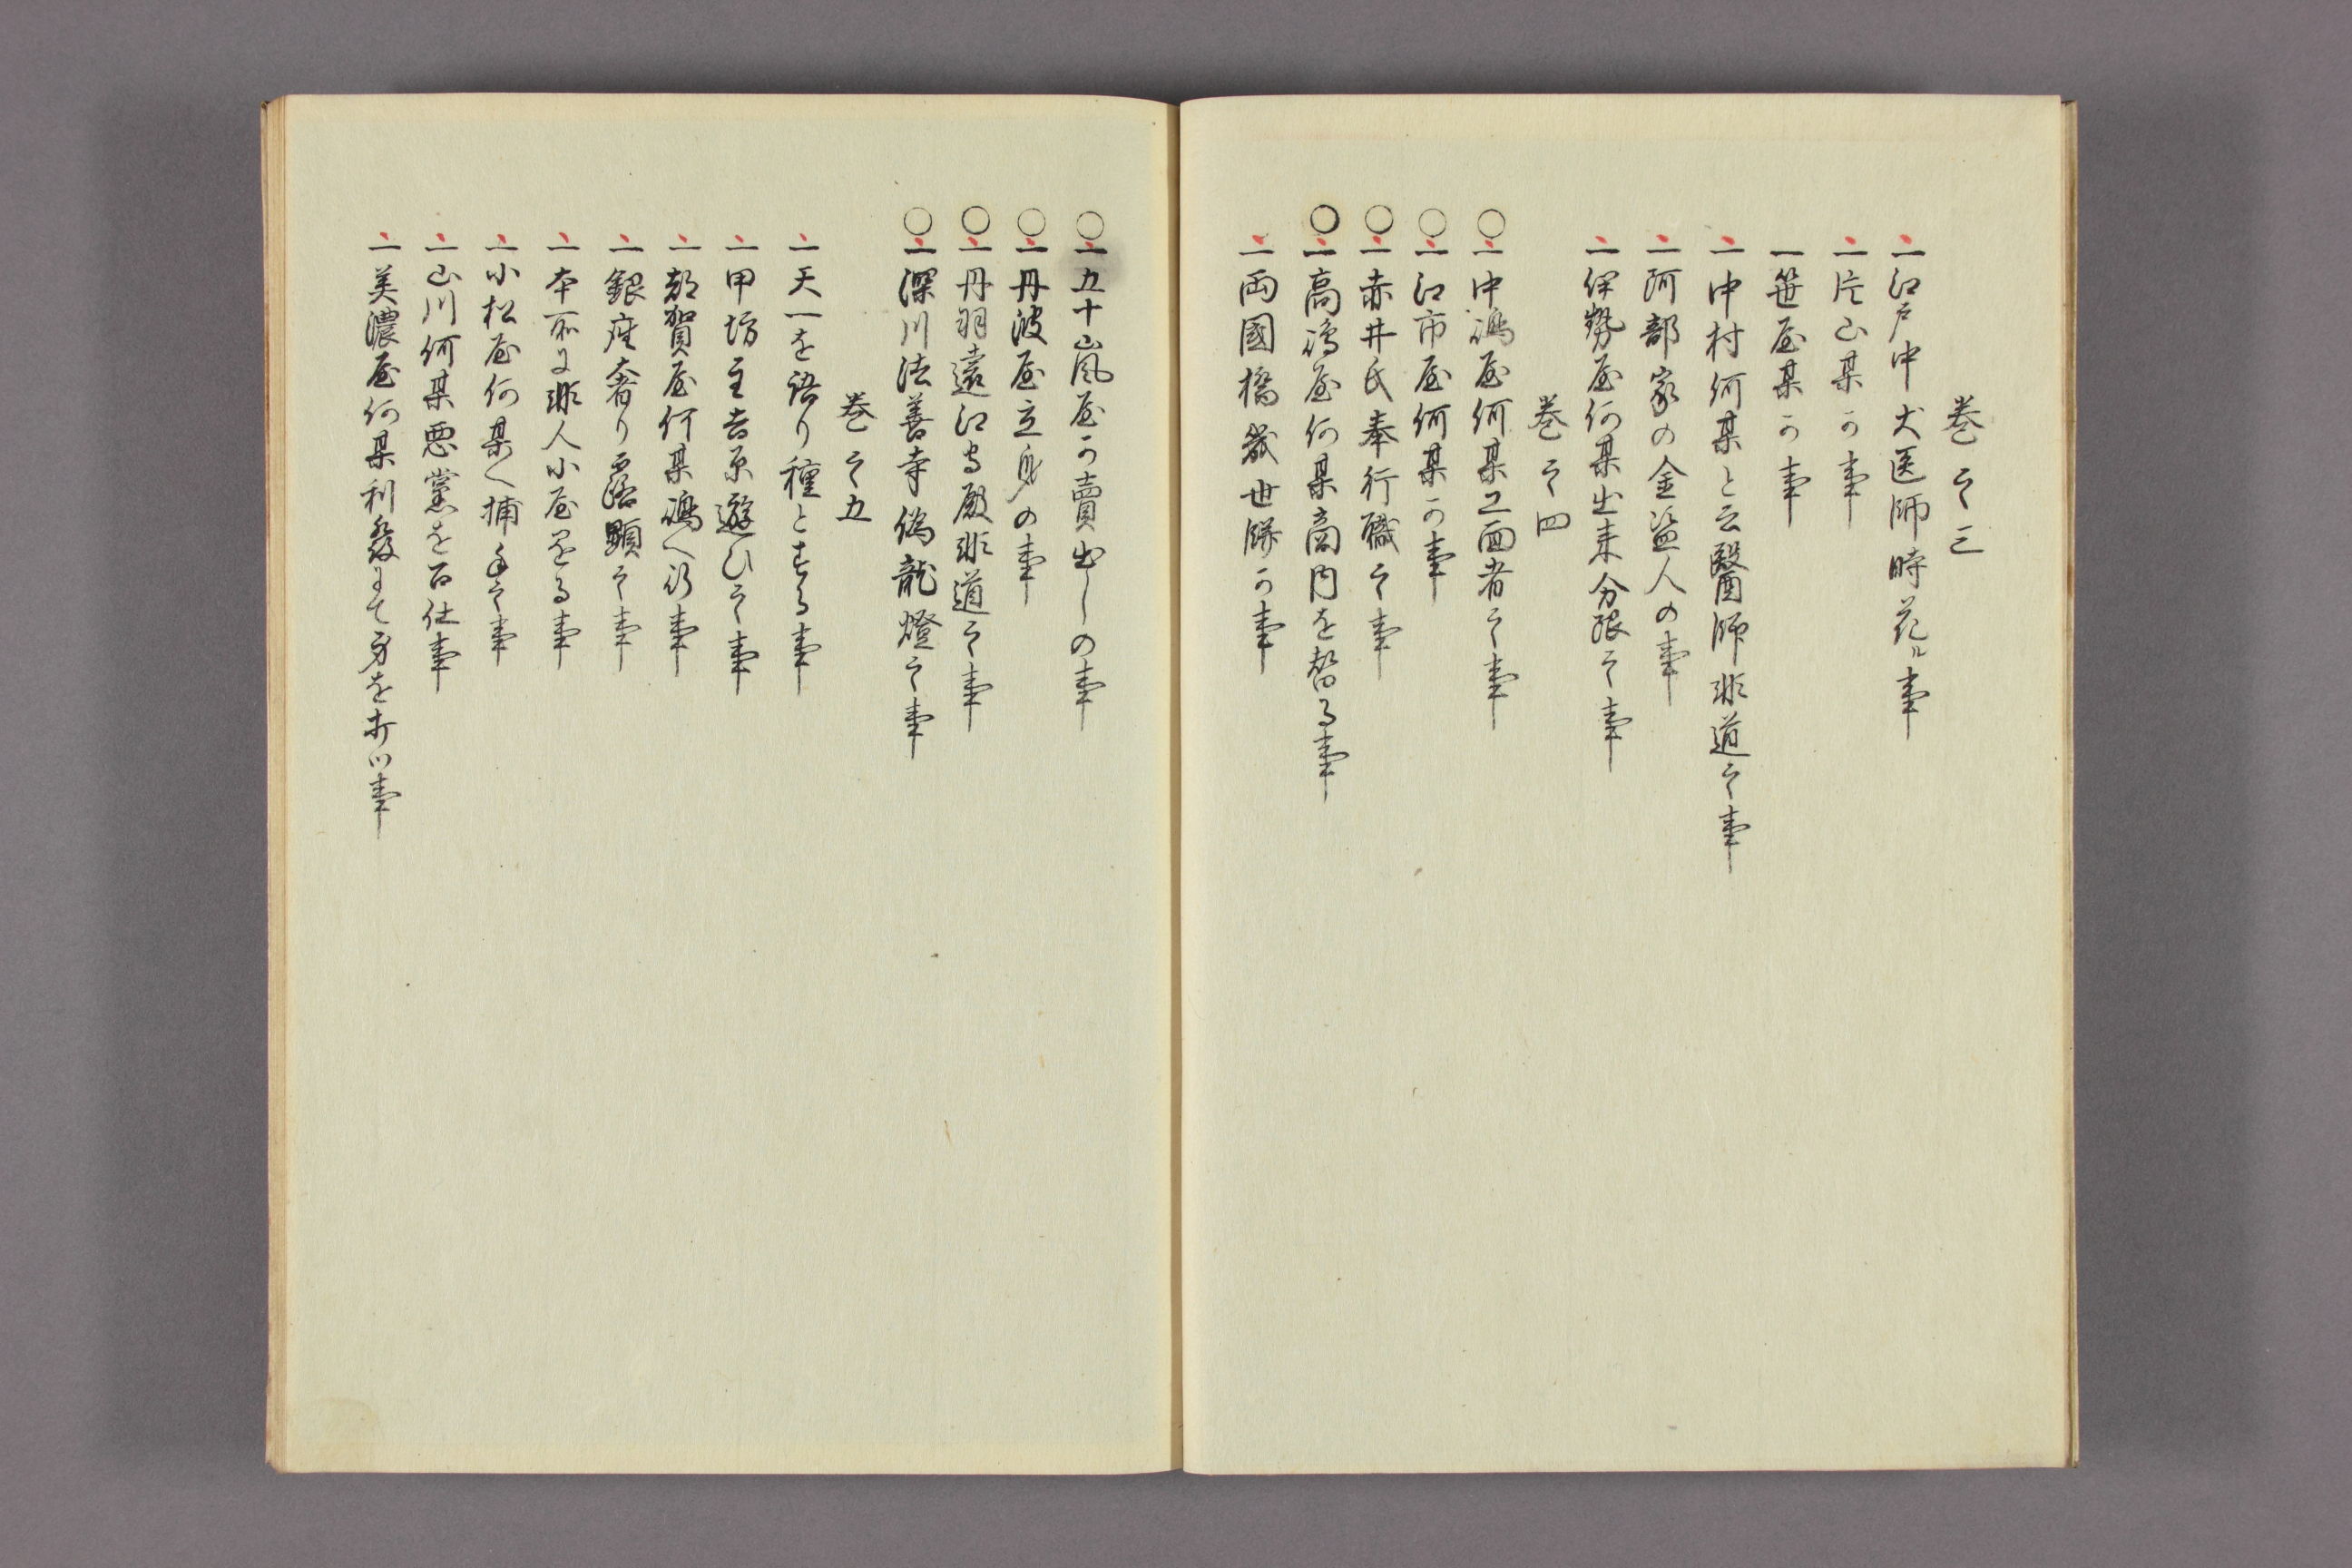 巻之三
一江戸中犬医師時花ル事
一片山某か事
一笹屋某か事
一中村何某と云醫師非道之事
一阿部家の金盗人の事
一伊勢屋何某出来分限之事
巻之四
〇一中嶋屋何某工面者之事
〇一江市屋何某か事
〇一赤井氏奉行職之事
〇一高嶋屋何某商内を替る事
一両國橋幾世餅か事
〇一五十嵐屋か賣出しの事
〇一丹波屋立身の事
〇一丹羽遠江守殿非道之事
〇一深川法善寺偽龍燈之事
巻之五
一天一を語り種とする事
一甲坊主吉原遊ひ之事
一都賀屋何某嶋へ行事
一銀座奢り露顕之事
一本所に非人小屋を建る事
一小松屋何某へ捕手之事
一山川何某悪黨を召仕事
一美濃屋何某利發にて身を打ツ事